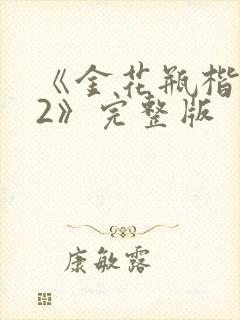 《金花瓶楷
2》完整版
康敏露